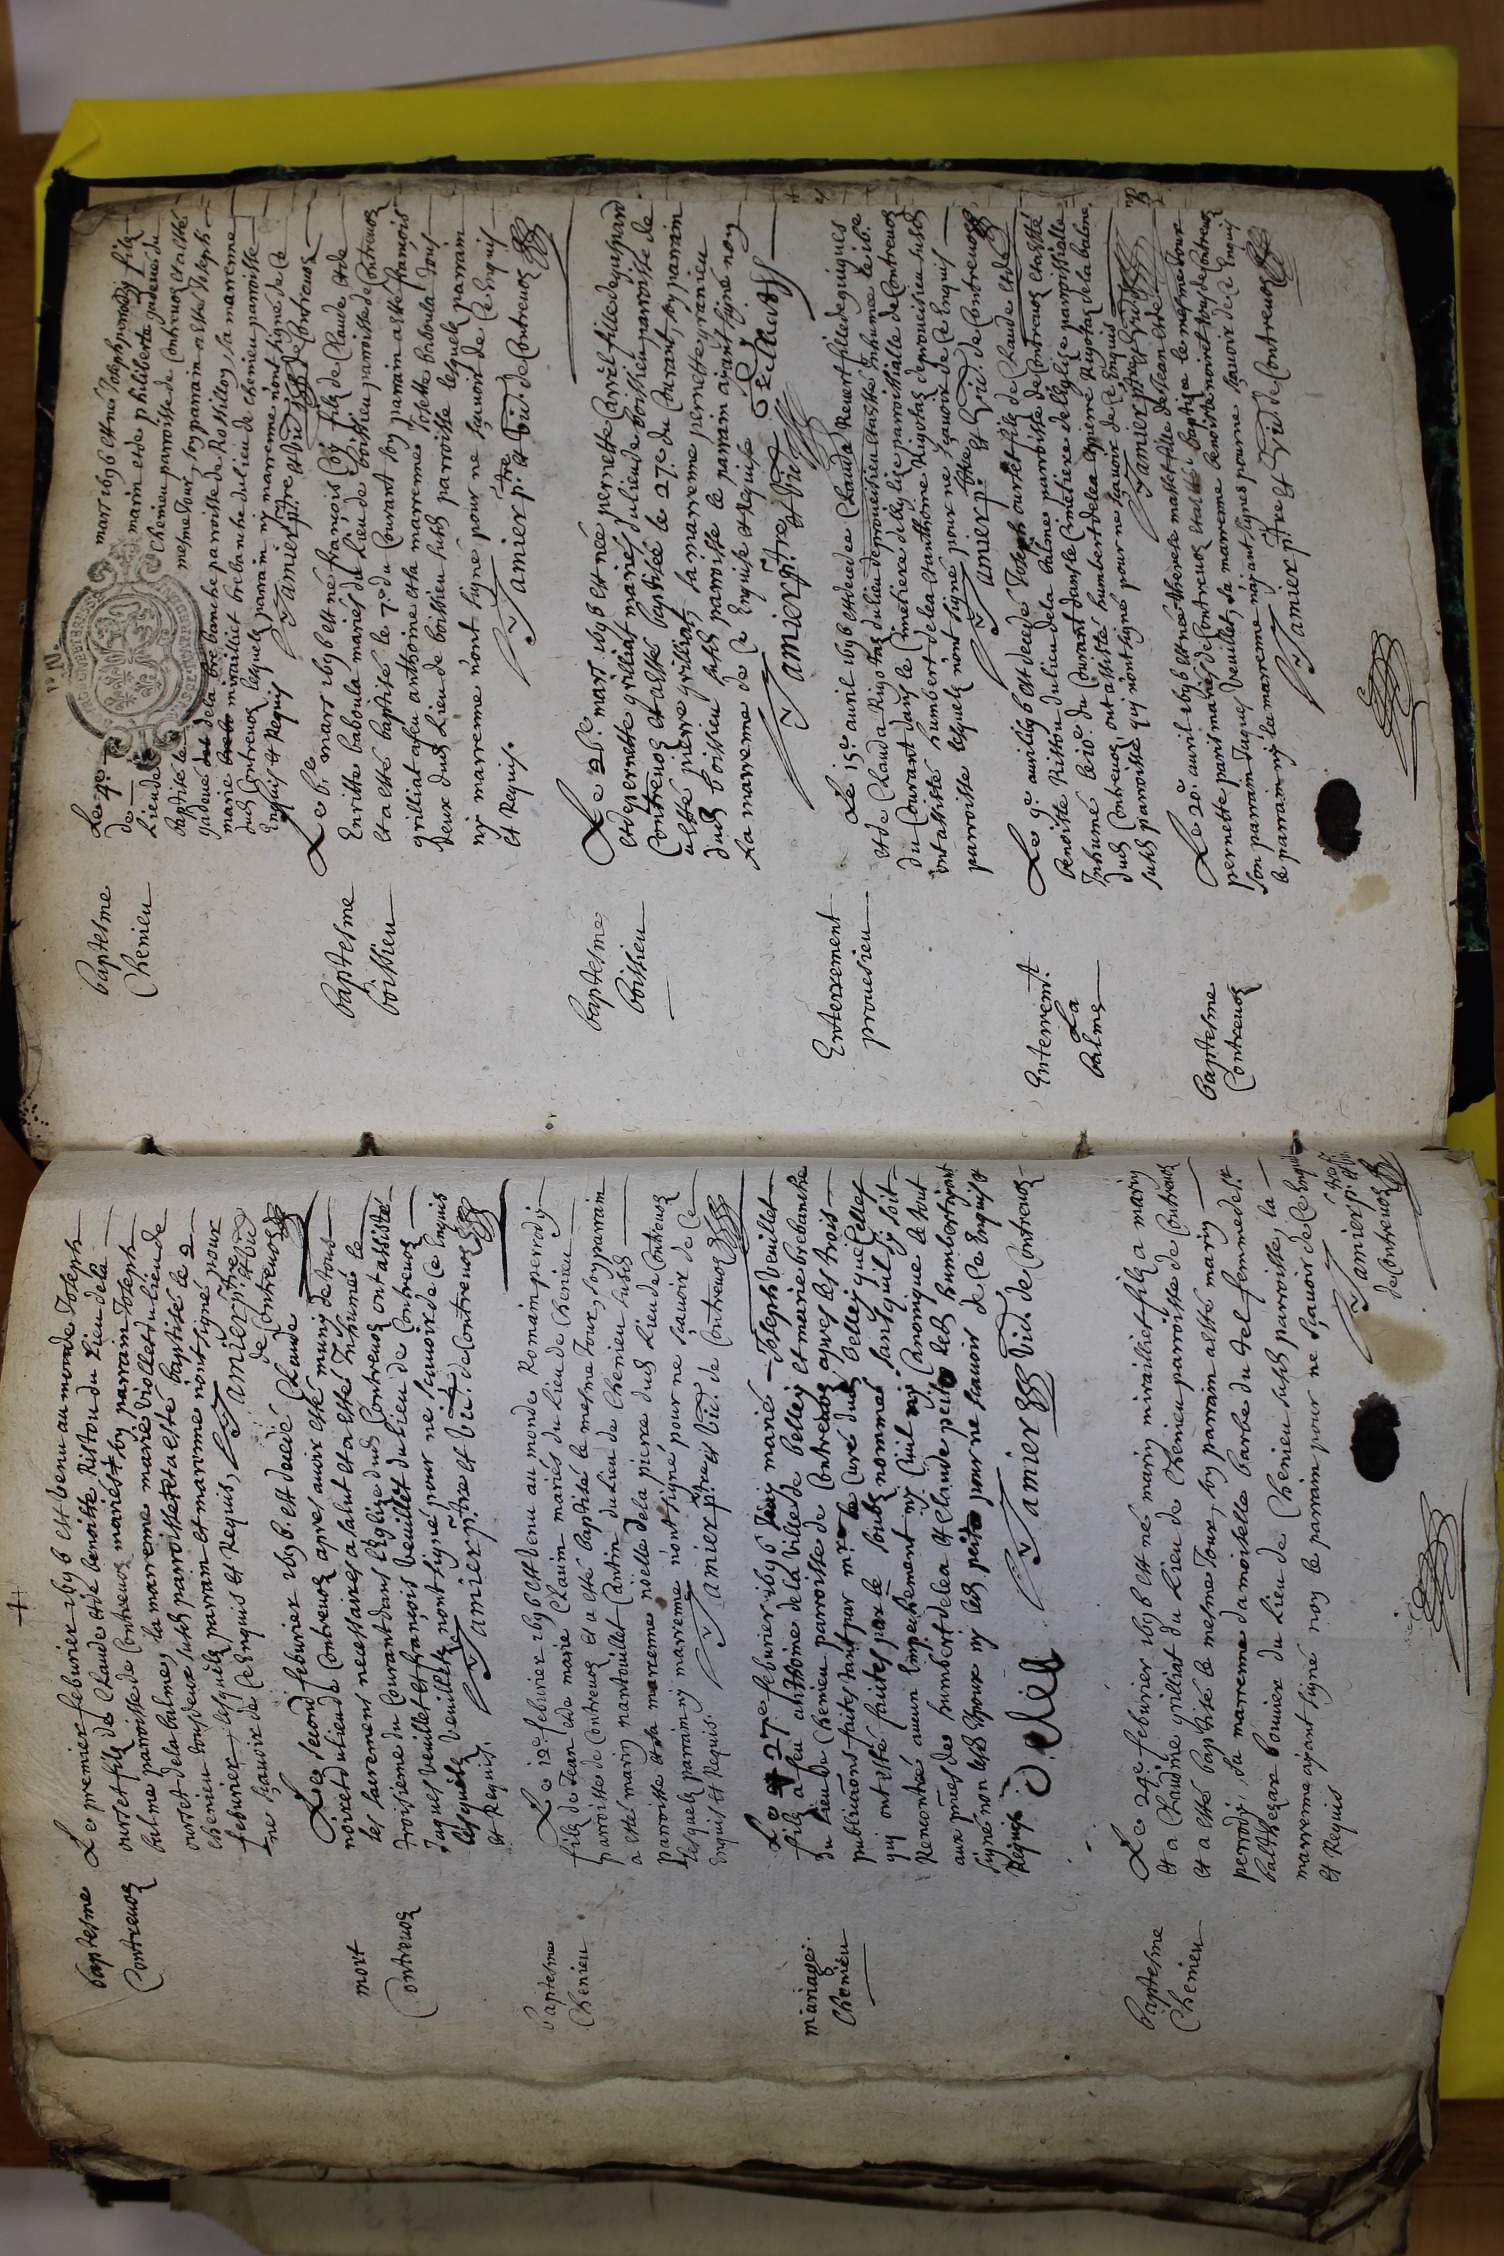 baptesme
Contreuoz
Le premier feburier 1696 est venu au monde Joseph
ourset fils de Claude et de benoitte Riston du Lieu de la
balme parroisse de Contreuoz mariés, son parrain Joseph
ourset de la balme, la marreme marie Viollet du lieu de
chenieu tous deux susd. parroisse et a esté baptisé le 2
feburier, lesquels parrain et marreme n'ont signé pour
ne sçauoir de ce Enquis et Requis, Jamier p.tre et vic.
de Contreuoz
mort
Contreuoz
Le second feburier 1696 est decedé Claude
noiret du lieu de Contreuoz apres auoir esté muny de tous
les sacremens necessaires a salut et a esté Inhumé le
troisieme du Courant dans l'Eglise dud. Contreuoz ont assisté
Jaques veuillet et françois veuillet du lieu de Contreuoz
lesquels veuillet n'ont signé pour ne sçauoir de ce Enquis
et Requis. Jamier p.tre et vic. de Contreuoz
baptesme
Chenieu
Le 12e feburier 1696 est venu au monde Romain perrody
fils de Jean et de marie Chauin mariés du lieu de Chenieu
parroisse de Contreuoz et a esté baptisé le mesme Jour, son parrain
a esté marin nantouillet Cantin du lieu de Chenieu susd.
parroisse et sa marreme noelle de la pierre dud. Lieu de Contreuoz
lesquels parrain ny marreme n'ont signé pour ne sçauoir de ce
Enquis et Requis. Jamier p.tre et vic. de Contreuoz
mariage
Chenieu
Le 27e feburier 1696 marié Joseph Veuillet
fils a feu anthoine de la Ville de belley et marie brebanche
du Lieu de Chenieu parroisse de Contreuoz apres les trois
publications faites tant par mre le Curé dud. belley que Celles
qui ont esté faites par le soubz nommé sans qu'il sy soit
Rencontré aucun Empechement ny Ciuil ny Canonique le tout
aux pñces de humbert delea et Claude petit led. humbert ayant
signé non led. Espoux ny led. petit pour ne sçauoir de ce Enquis et
Requis. Jamier vic. de Contreuoz
delea
baptesme
Chenieu
Le 24e feburier 1696 est né marin mirailliet fils a marin
et a Claudine grilliat du Lieu de Chenieu parroisse de Contreuoz
et a esté baptisé le mesme Jour, son parrain a esté marin
perrody, sa marreme damoiselle barbe du tel femme de Sr
balthezard bouuier du Lieu de Chenieu susd. parroisse, la
marreme ayant signé non le parrain pour ne sçauoir de ce Enquis
et Requis Jamier p.tre et vic.
de Contreuoz
baptesme
Chenieu
Le 4e mars 1696 est né Joseph perrody fils
de marin et de philiberte gadenet du
Lieu de Chenieu parroisse de Contreuoz et a esté
baptisé le mesme Jour, son parrain a esté Joseph
gadenet de la brebanche parroisse de Rossillon, la marreme
marie mirailliet brebanche du lieu de chenieu parroisse
dud. Contreuoz lesquels parrain ny marreme n'ont signé de Ce
Enquis et Requis Jamier p.tre et vic. de Contreuoz
baptesme
boissieu
Le 6e mars 1696 est né françois Coy fils de Claude et de
Enriette baboula mariés du Lieu de boissieu parroisse de Contreuoz
et a esté baptisé le 7e du Courant son parrain a esté françois
grilliat a feu anthoine et la marreme Josette baboula tous
deux dud. Lieu de boissieu susd. parroisse lesquels parrain
ny marreme n'ont signé pour ne sçauoir de Ce Enquis
et Requis. Jamier p.tre et vic. de Contreuoz
baptesme
boissieu
Le 26e mars 1696 est née pernette Carril fille de gaspard
et de pernette grilliat mariés du lieu de boissieu parroisse de
Contreuoz et a esté baptisée le 27e du Courant, son parrain
a esté pierre grilliat, la marreme pernette granieu
dud. boissieu susd. parroisse le parrain ayant signé non
la marreme de Ce Enquise et Requise
Jamier p.tre et vic.
baptesme
Enterrement
proueisieu
Le 15e auril 1696 est decedée Claudа Reuert fille de guigues
et de Clauda Rigotaz du lieu de proueisieu et a esté Inhumée le 16e
du Courant dans le Cimetiere de l'eglise parroissialle de Contreuoz
ont assisté humbert delea et anthoine Rigotaz de proueisieu susd.
parroisse lesquels n'ont signé pour ne sçauoir de Ce Enquis
Jamier p.tre et vic. de Contreuoz
Enterremt.
La
balme
Le 9e auril 1696 est decedé Joseph ourset fils de Claude et de
benoitte Riston du lieu de la balme parroisse de Contreuoz et a esté
Inhumé le 10e du Courant dans le Cimetiere de l'eglise parroissialle
dud. Contreuoz, ont assisté humbert delea et pierre Rigotaz de la balme
susd. parroisse qui n'ont signé pour ne sçauoir de ce Enquis
Jamier p.tre et vic.
baptesme
Contreuoz
Le 20e auril 1696 est née therese mattet fille de Jean et de
pernette paris mariés de Contreuoz et a esté baptisée le mesme Jour
son parrain Jaques Veuillet, sa marreme benoitte noiret tous de Contreuoz
le parrain ny la marreme n'ayant signés pour ne sçauoir de Ce Enquis
Jamier p.tre et vic. de Contreuoz